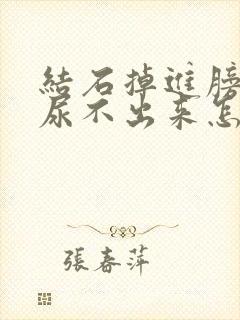 結石掉進膀
尿不出来怎
張春萍